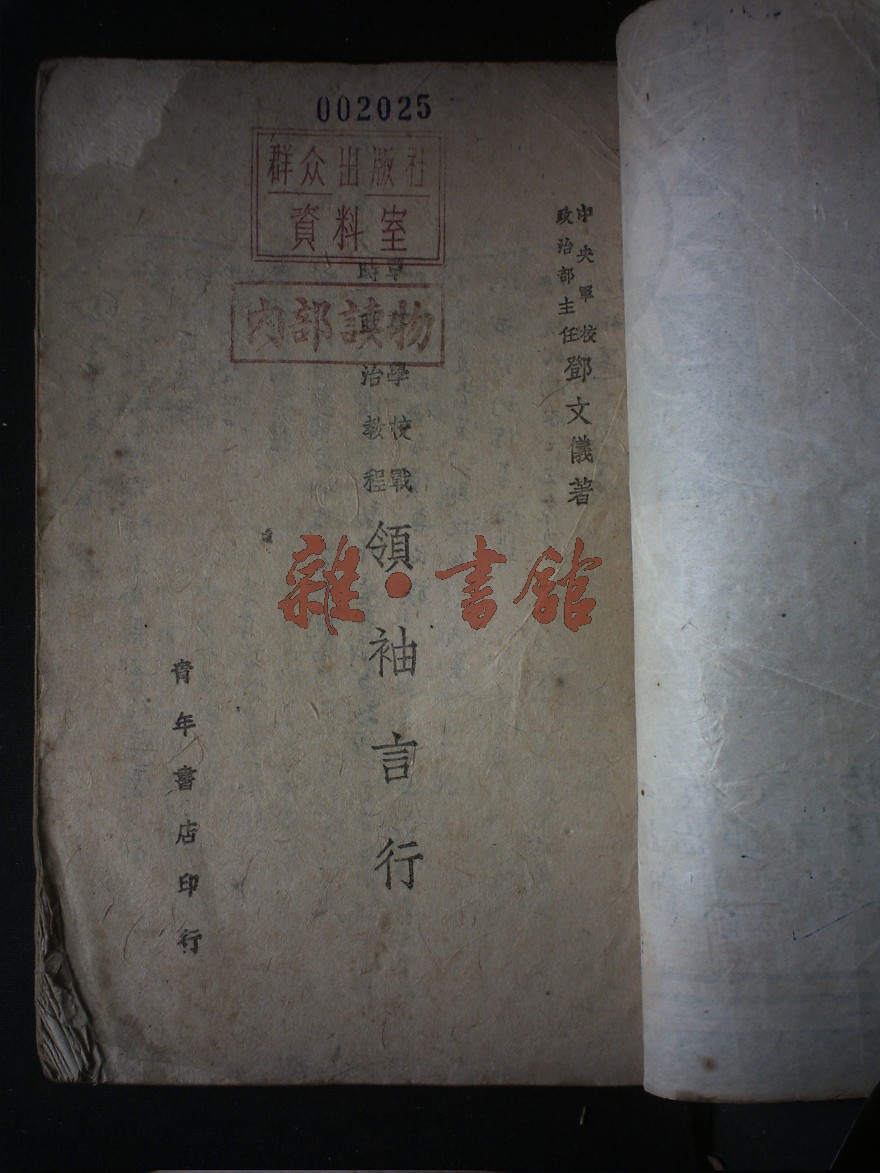 002025
群众出版社
資料室
內部讀物
中央軍校
政治部主任
鄧文儀著
軍學校戰
時治教程
領袖言行
青年書店印行
雜·書館